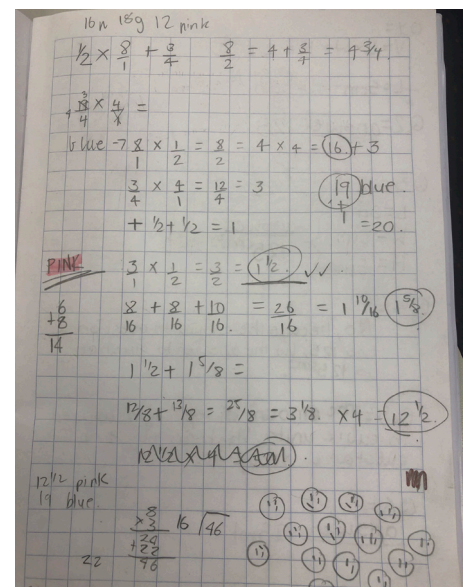 16n 18g 12 pink
1/2 × 8/1 + 3/4 8/2 = 4 + 3/4 = 4 3/4
× 4/1 =
blue → 8/1 × 1/2 = 8/2 = 4 × 4 = 16 + 3
3/4 × 4/1 = 12/4 = 3 19 blue.
+ 1/2 + 1/2 = 1 + 1 = 20.
PINK 3/1 × 1/2 = 3/2 = 1 1/2. ✓✓
6 + 8 14
8/16 + 8/16 + 10/16. = 26/16 = 1 10/16 1 5/8.
1 1/2 + 1 5/8 =
12/8 + 13/8 = 25/8 = 3 1/8. × 4 = 12 1/2.
12 1/2 pink
19 blue
8 × 3 24 + 22 46
16 46
22